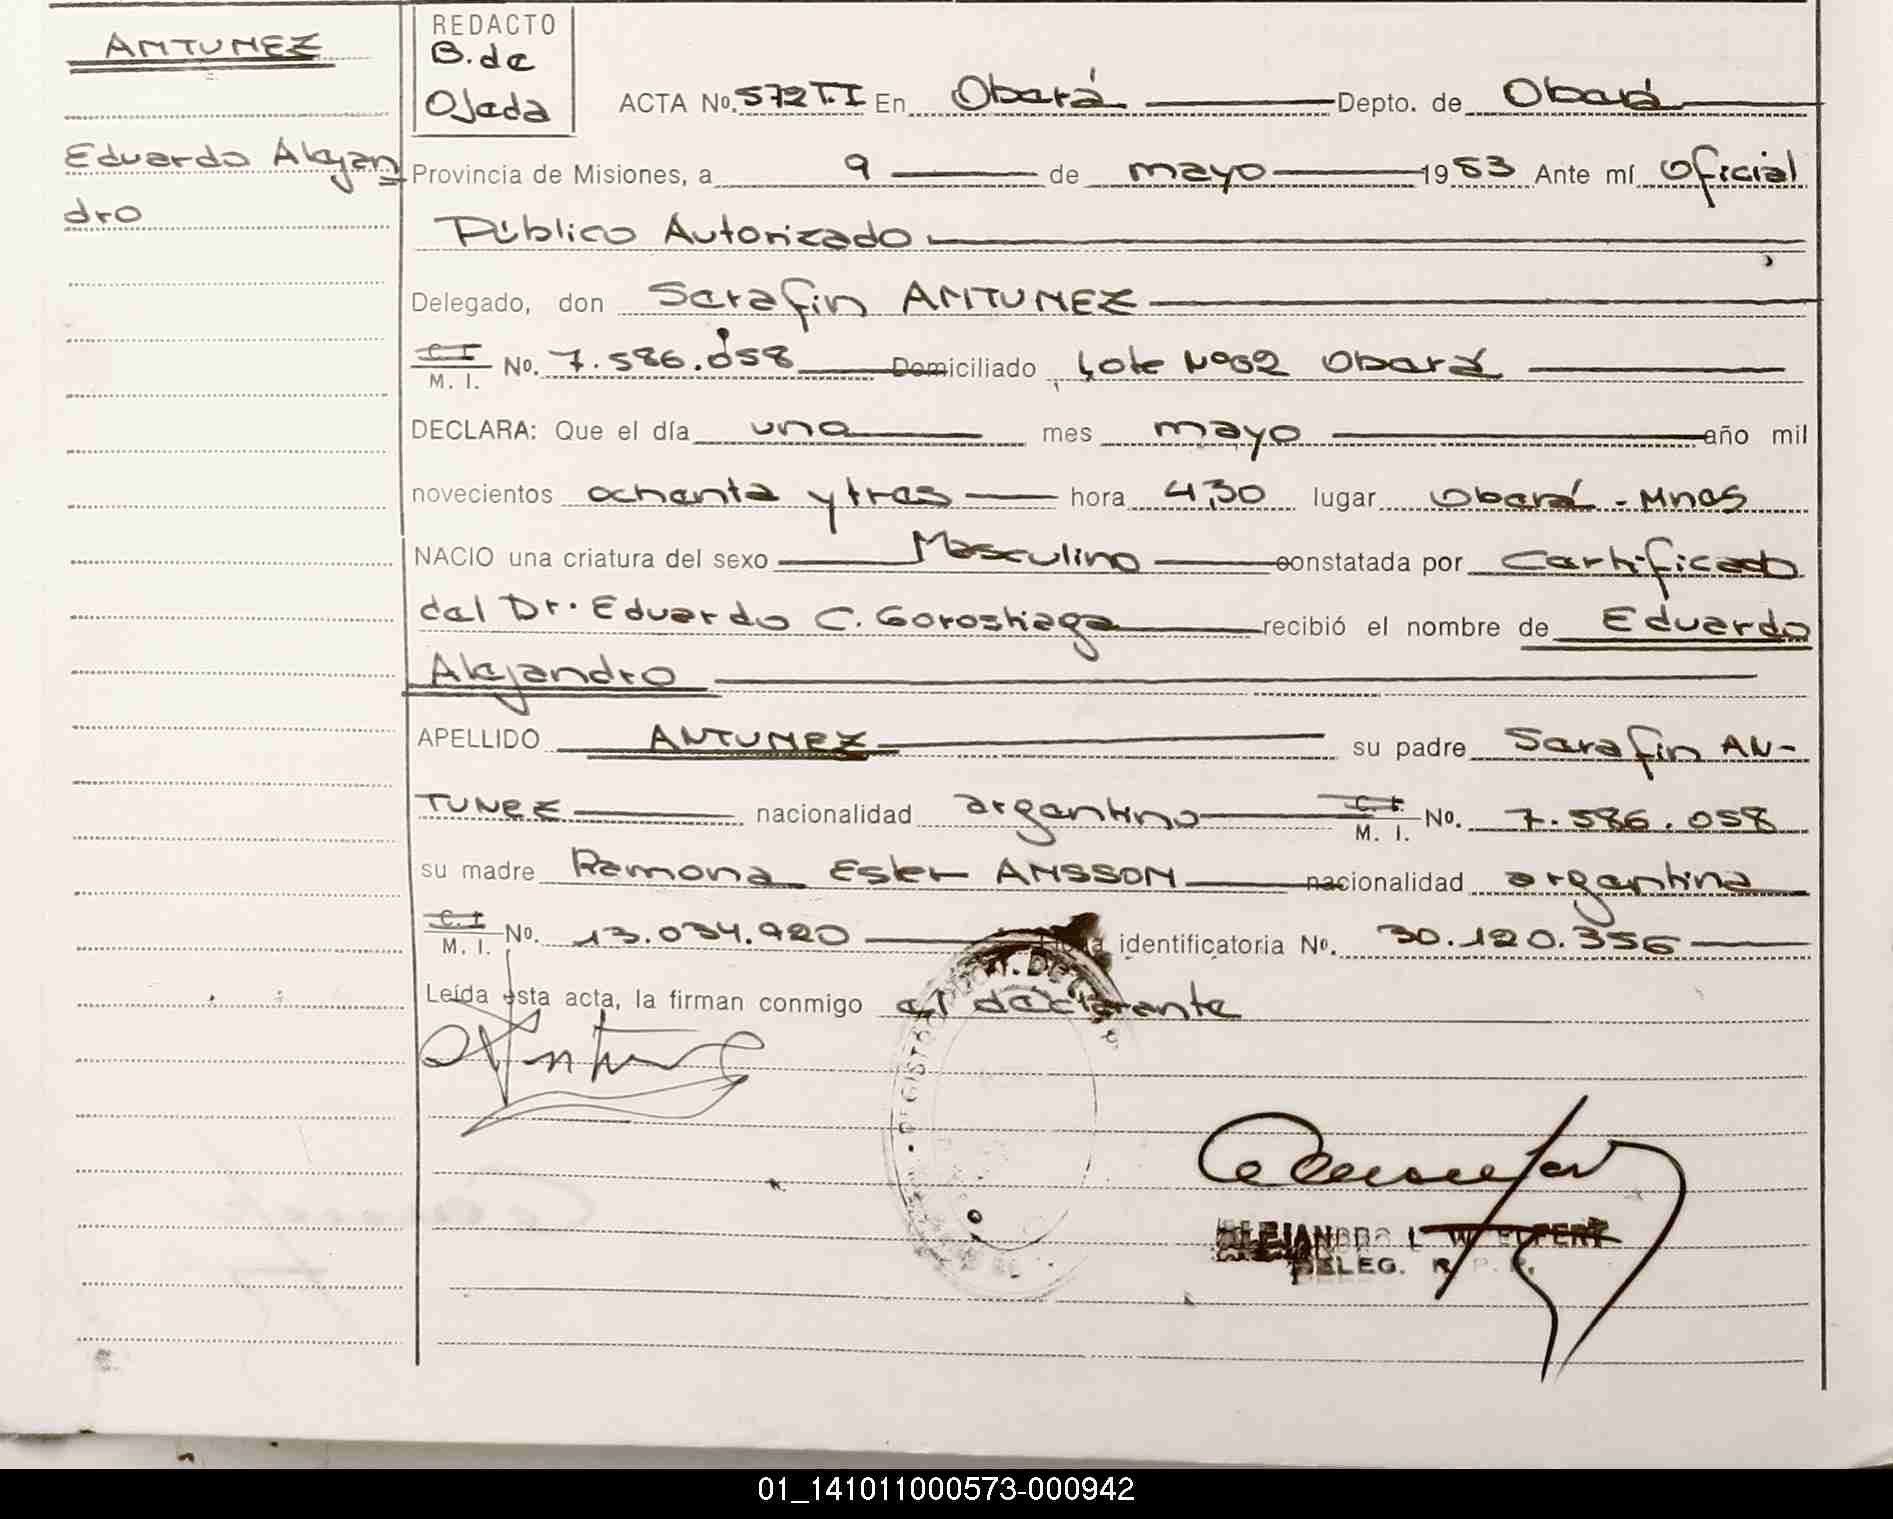 ANTUNEZ
Eduardo Alejan
dro
REDACTO
B. de
Ojeda
ACTA No. 572 T.I En Oberá Depto. de Oberá
Provincia de Misiones, a 9 de mayo 1983 Ante mí Oficial
Público Autorizado
Delegado, don Serafin ANTUNEZ
C I
M. I. No. 7.586.058 Domiciliado Lote Nº 92 Oberá
DECLARA: Que el día uno mes mayo año mil
novecientos ochenta y tres hora 4,30 lugar Oberá - Mnes
NACIO una criatura del sexo Masculino constatada por Certificado
del Dr. Eduardo C. Gorostiaga recibió el nombre de Eduardo
Alejandro
APELLIDO ANTUNEZ su padre Serafin AN-
TUNEZ nacionalidad argentino C. I. M. I. No. 7.586.058
su madre Ramona Ester ANSSON nacionalidad argentina
C. I
M. I. No. 13.034.920 identificatoria No. 30.120.356
Leída esta acta, la firman conmigo el declarante
ALEJANDRO L.
DELEG. R. P. P.
01_141011000573-000942